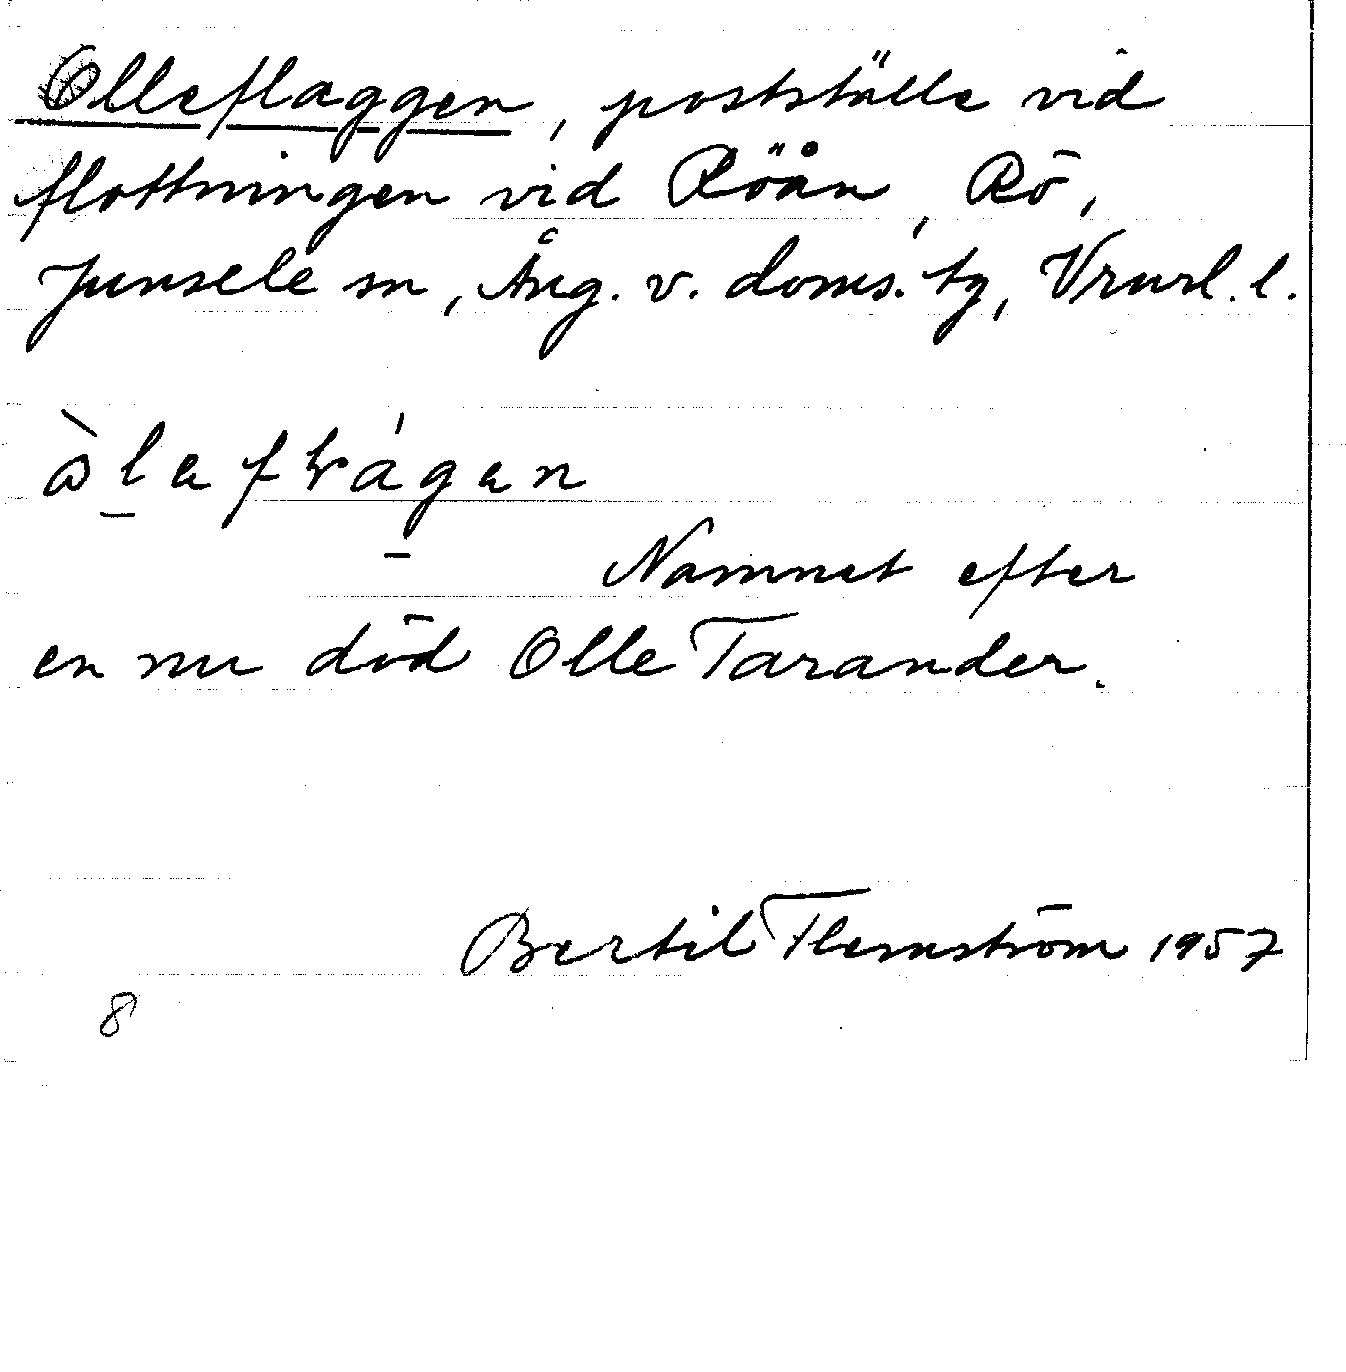 Olleflaggen, postställe vid
flottningen vid Röån, Rö,
Junsele sn, Ång. v. doms. tg, Vrnrl. l.
Namnet efter
en nu död Olle Tarander.
Bertil Flemström 1957
8